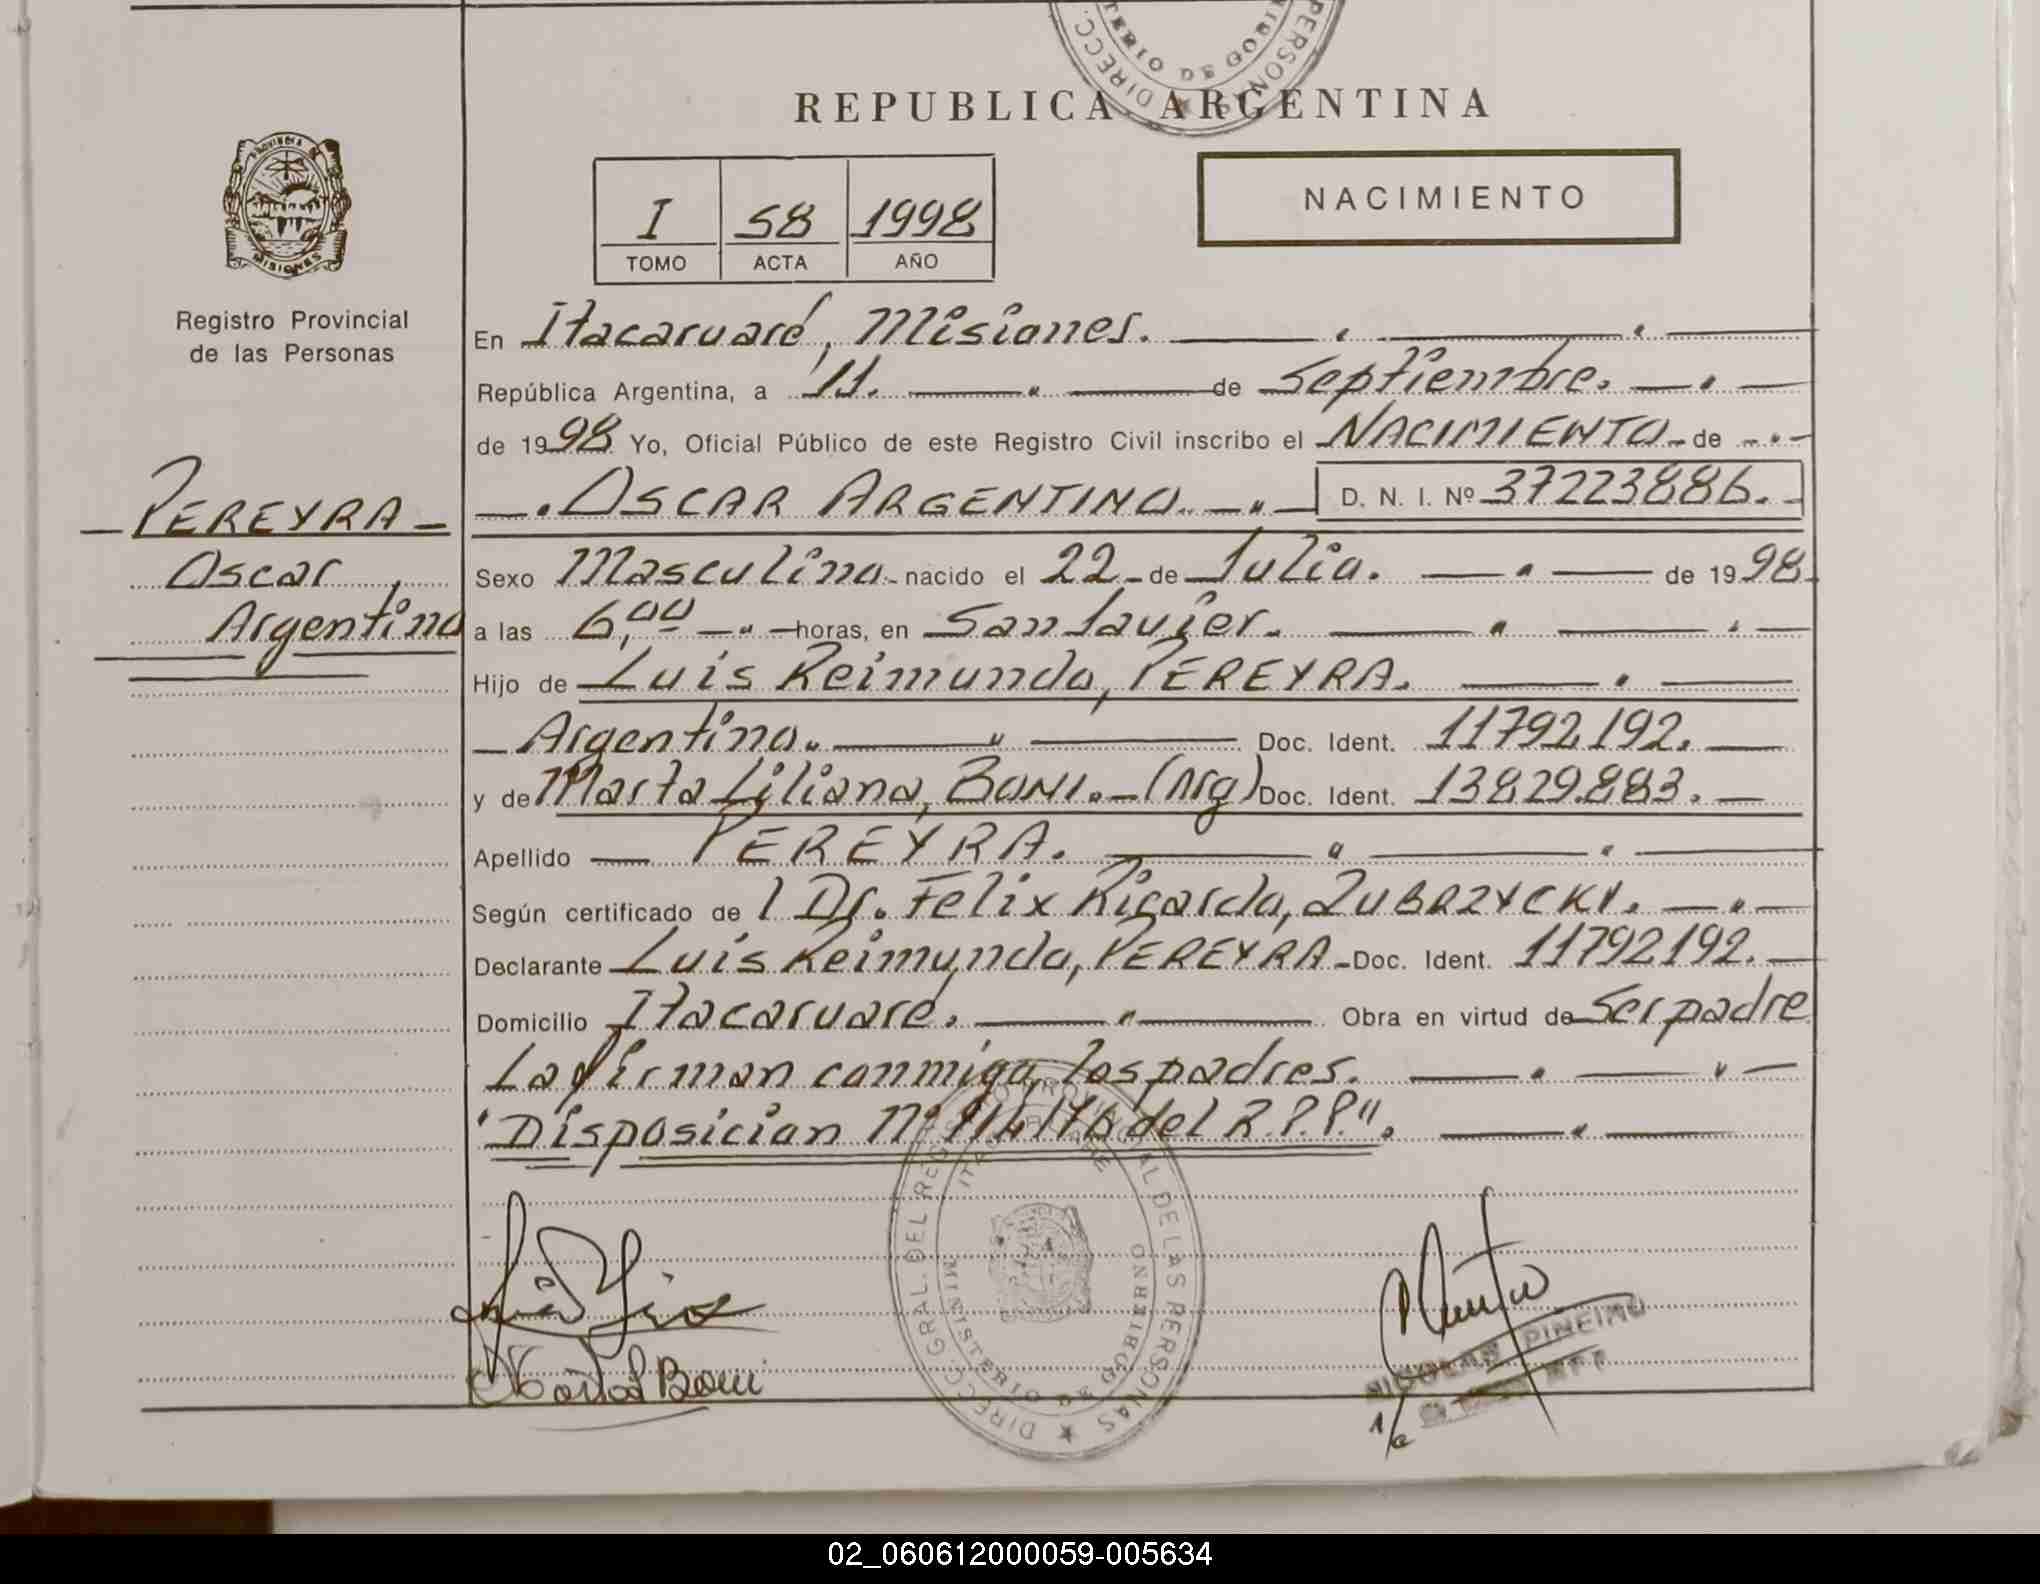 REPUBLICA ARGENTINA
PROVINCIA
MISIONES
Registro Provincial
de las Personas
I 58 1998
TOMO ACTA AÑO
NACIMIENTO
En Itacaruaré, Misiones.
República Argentina, a 11. de Septiembre.
de 1998 Yo, Oficial Público de este Registro Civil inscribo el NACIMIENTO de
PEREYRA
Oscar
Argentino
OSCAR ARGENTINO. D. N. I. Nº 37223886.
Sexo Masculino nacido el 22 de Julio. de 1998
a las 6,00 horas, en San Javier.
Hijo de Luis Reimundo, PEREYRA.
Argentino. Doc. Ident. 11792192.
y de Marta Liliana, BONI. (Arg) Doc. Ident. 13829.883.
Apellido PEREYRA.
Según certificado de l Dr. Felix Ricardo, ZUBRZYCKI.
Declarante Luis Reimundo, PEREYRA Doc. Ident. 11792192.
Domicilio Itacaruaré. Obra en virtud de Ser padre
La firman conmigo, los padres.
"Disposicion Nº del R.P.P.".
DIRECC. GRAL. DEL REG. PROVINCIAL DE LAS PERSONAS
MINISTERIO DE GOBIERNO
Marta Boni
NICOLAS PINEIRO
02_060612000059-005634